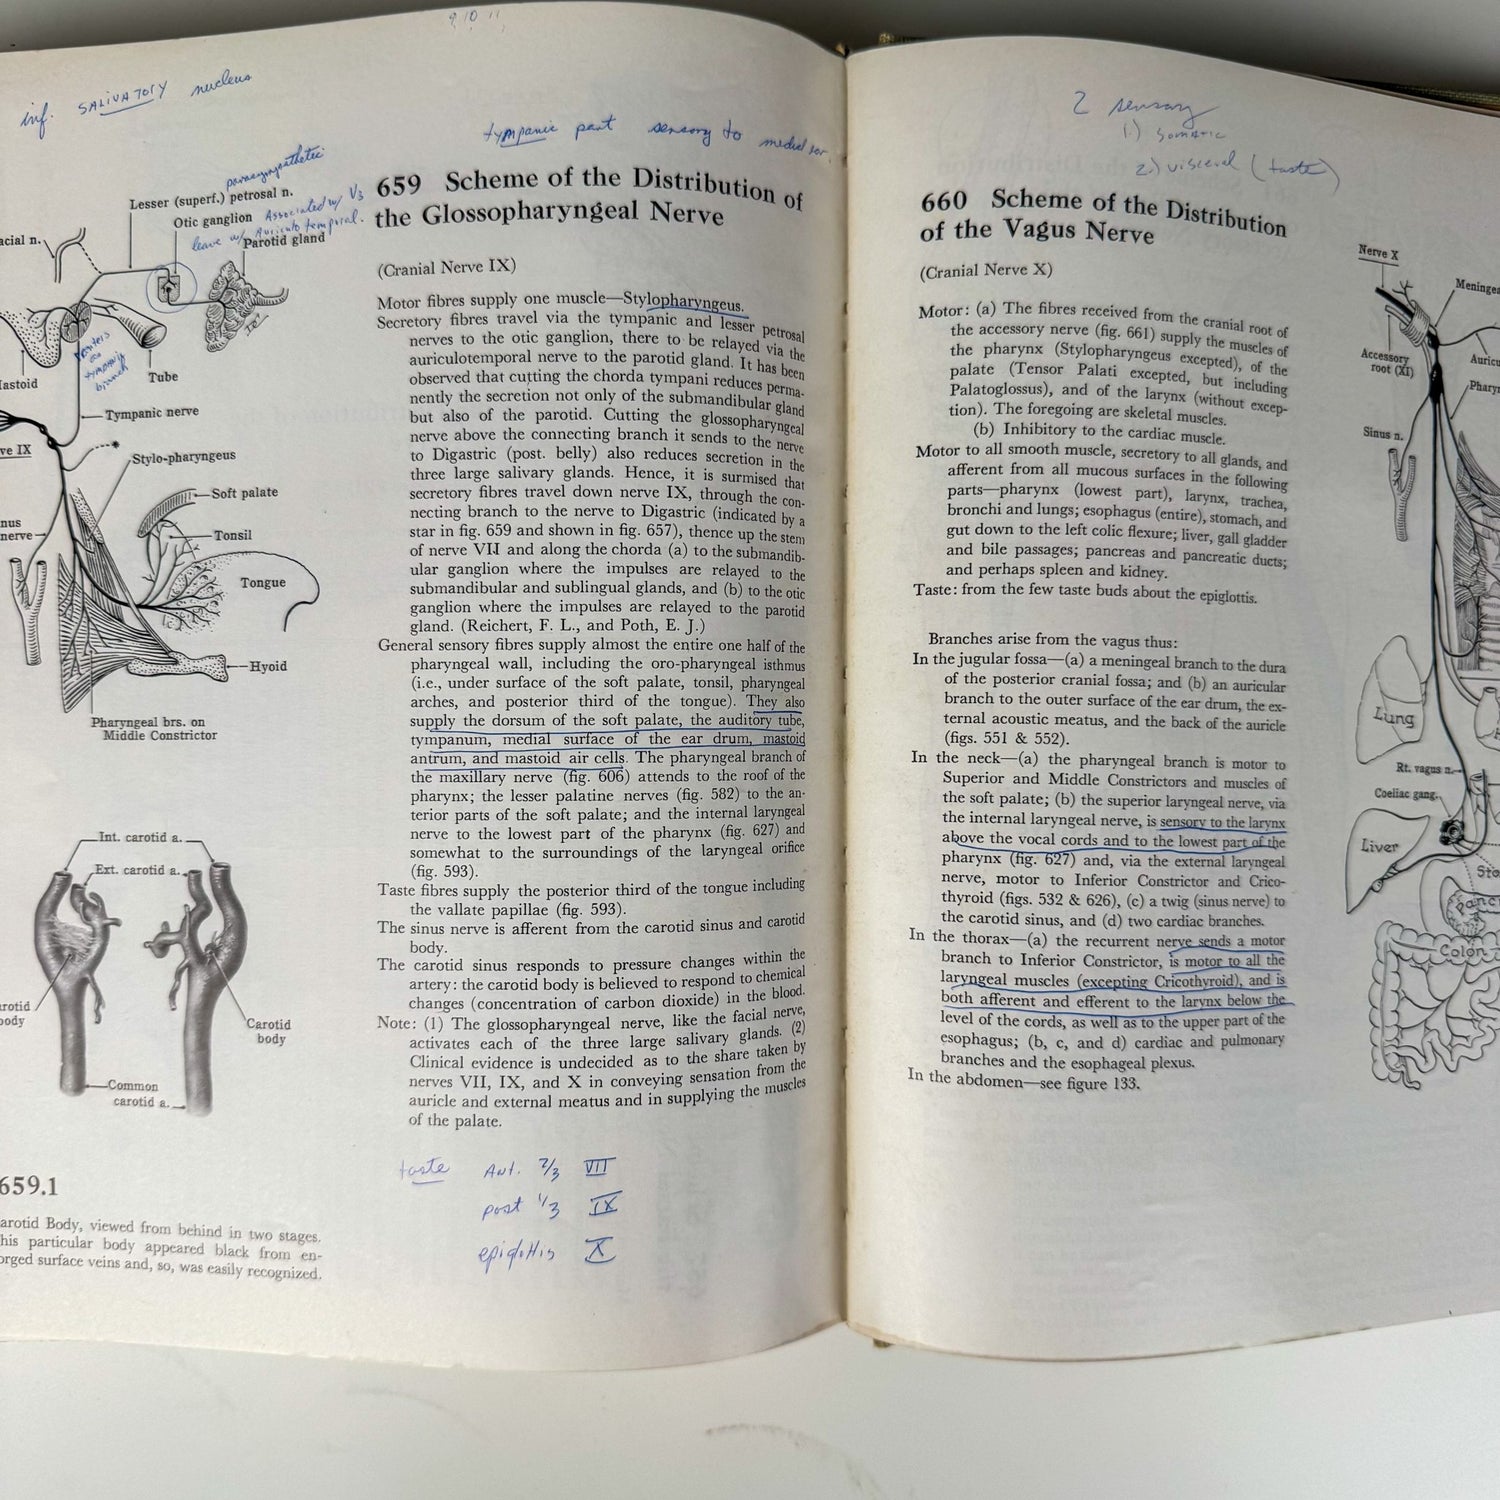 9 10 11
inf. SALIVATORY nucleus
parasympathetic
Lesser (superf.) petrosal n.
Otic ganglion Associated w/ V3
leave w/ Auriculo temporal.
Parotid gland
acial n.
enters
as
tympanic
branch
astoid
Tube
Tympanic nerve
ve IX
Stylo-pharyngeus
Soft palate
nus
nerve
Tonsil
Tongue
Hyoid
Pharyngeal brs. on
Middle Constrictor
Int. carotid a.
Ext. carotid a.
rotid
body
Carotid
body
Common
carotid a.
659.1
arotid Body, viewed from behind in two stages.
his particular body appeared black from en-
orged surface veins and, so, was easily recognized.
tympanic part sensory to medial
659 Scheme of the Distribution of
the Glossopharyngeal Nerve
(Cranial Nerve IX)
Motor fibres supply one muscle—Stylopharyngeus.
Secretory fibres travel via the tympanic and lesser petrosal
nerves to the otic ganglion, there to be relayed via the
auriculotemporal nerve to the parotid gland. It has been
observed that cutting the chorda tympani reduces perma-
nently the secretion not only of the submandibular gland
but also of the parotid. Cutting the glossopharyngeal
nerve above the connecting branch it sends to the nerve
to Digastric (post. belly) also reduces secretion in the
three large salivary glands. Hence, it is surmised that
secretory fibres travel down nerve IX, through the con-
necting branch to the nerve to Digastric (indicated by a
star in fig. 659 and shown in fig. 657), thence up the stem
of nerve VII and along the chorda (a) to the submandib-
ular ganglion where the impulses are relayed to the
submandibular and sublingual glands, and (b) to the otic
ganglion where the impulses are relayed to the parotid
gland. (Reichert, F. L., and Poth, E. J.)
General sensory fibres supply almost the entire one half of the
pharyngeal wall, including the oro-pharyngeal isthmus
(i.e., under surface of the soft palate, tonsil, pharyngeal
arches, and posterior third of the tongue). They also
supply the dorsum of the soft palate, the auditory tube,
tympanum, medial surface of the ear drum, mastoid
antrum, and mastoid air cells. The pharyngeal branch of
the maxillary nerve (fig. 606) attends to the roof of the
pharynx; the lesser palatine nerves (fig. 582) to the an-
terior parts of the soft palate; and the internal laryngeal
nerve to the lowest part of the pharynx (fig. 627) and
somewhat to the surroundings of the laryngeal orifice
(fig. 593).
Taste fibres supply the posterior third of the tongue including
the vallate papillae (fig. 593).
The sinus nerve is afferent from the carotid sinus and carotid
body.
The carotid sinus responds to pressure changes within the
artery: the carotid body is believed to respond to chemical
changes (concentration of carbon dioxide) in the blood.
Note: (1) The glossopharyngeal nerve, like the facial nerve,
activates each of the three large salivary glands. (2)
Clinical evidence is undecided as to the share taken by
nerves VII, IX, and X in conveying sensation from the
auricle and external meatus and in supplying the muscles
of the palate.
taste Ant. 2/3 VII
post 1/3 IX
epiglottis X
2 sensory
1.) Somatic
2.) visceral (taste)
660 Scheme of the Distribution
of the Vagus Nerve
(Cranial Nerve X)
Motor: (a) The fibres received from the cranial root of
the accessory nerve (fig. 661) supply the muscles of
the pharynx (Stylopharyngeus excepted), of the
palate (Tensor Palati excepted, but including
Palatoglossus), and of the larynx (without excep-
tion). The foregoing are skeletal muscles.
(b) Inhibitory to the cardiac muscle.
Motor to all smooth muscle, secretory to all glands, and
afferent from all mucous surfaces in the following
parts—pharynx (lowest part), larynx, trachea,
bronchi and lungs; esophagus (entire), stomach, and
gut down to the left colic flexure; liver, gall gladder
and bile passages; pancreas and pancreatic ducts;
and perhaps spleen and kidney.
Taste: from the few taste buds about the epiglottis.
Branches arise from the vagus thus:
In the jugular fossa—(a) a meningeal branch to the dura
of the posterior cranial fossa; and (b) an auricular
branch to the outer surface of the ear drum, the ex-
ternal acoustic meatus, and the back of the auricle
(figs. 551 & 552).
In the neck—(a) the pharyngeal branch is motor to
Superior and Middle Constrictors and muscles of
the soft palate; (b) the superior laryngeal nerve, via
the internal laryngeal nerve, is sensory to the larynx
above the vocal cords and to the lowest part of the
pharynx (fig. 627) and, via the external laryngeal
nerve, motor to Inferior Constrictor and Crico-
thyroid (figs. 532 & 626), (c) a twig (sinus nerve) to
the carotid sinus, and (d) two cardiac branches.
In the thorax—(a) the recurrent nerve sends a motor
branch to Inferior Constrictor, is motor to all the
laryngeal muscles (excepting Cricothyroid), and is
both afferent and efferent to the larynx below the
level of the cords, as well as to the upper part of the
esophagus; (b, c, and d) cardiac and pulmonary
branches and the esophageal plexus.
In the abdomen—see figure 133.
Nerve X
Meninge
Accessory
root (XI)
Auricu
Phary
Sinus n.
Lung
H
Rt. vagus n.
Coeliac gang.
Liver
Sto
Panc
Colon